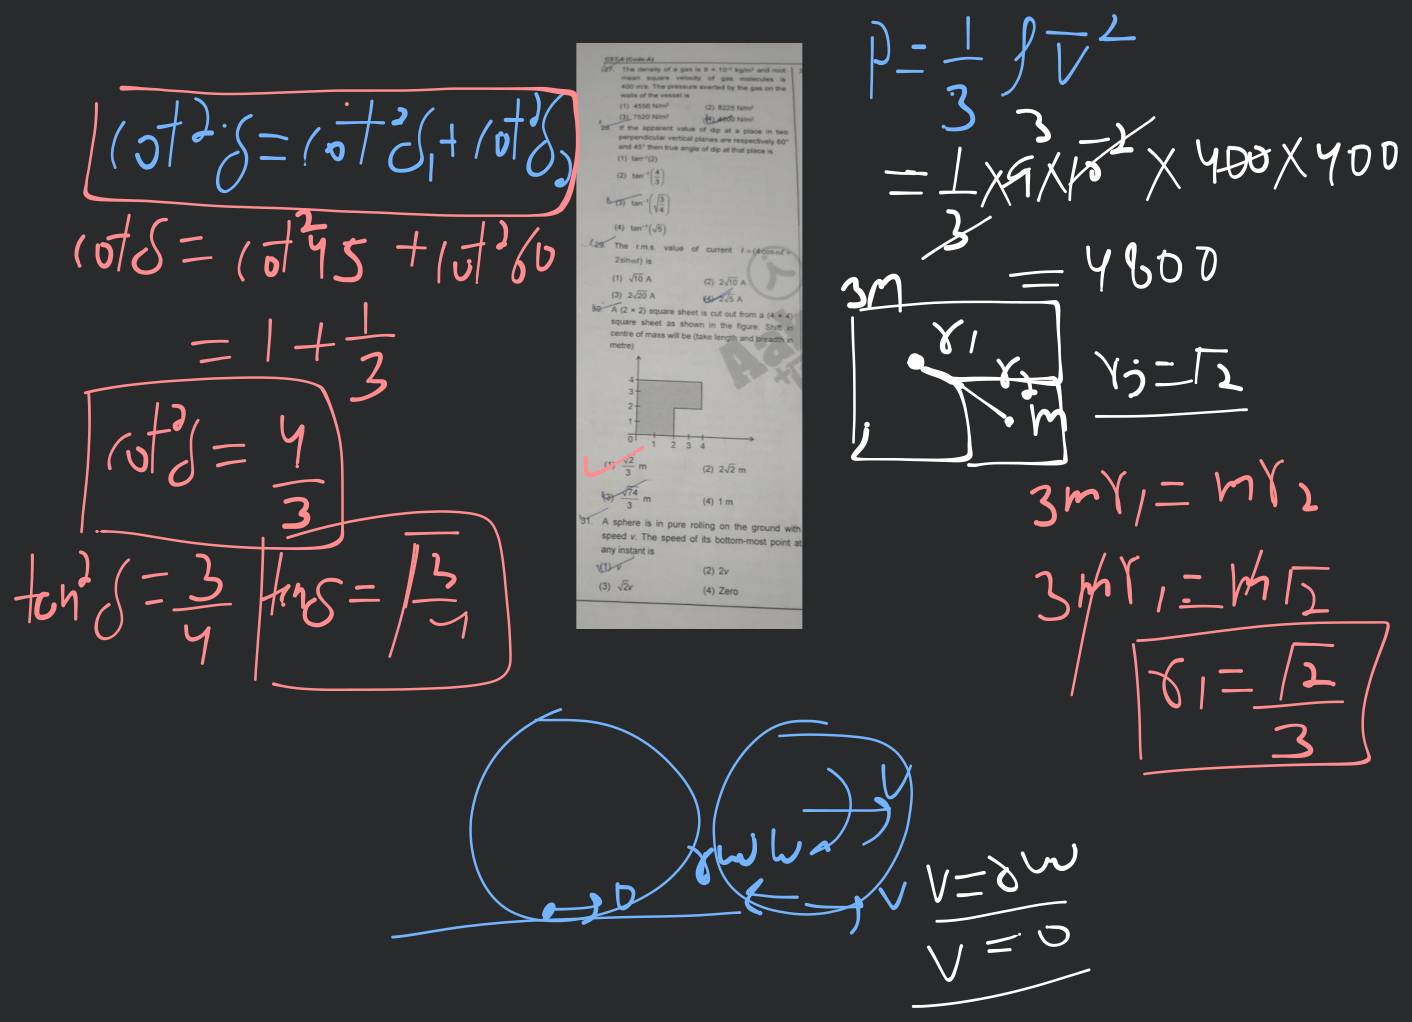 cot²δ = cot²δ₁ + cot²δ₂
cotδ = cot²45 + cot²60
= 1 + 1/3
cot²δ = 4/3
tan²δ = 3/4
tanδ = √3/4
CST-A (Code-A)
27. The density of a gas is 9 × 10⁻² kg/m³ and root
mean square velocity of gas molecules is
400 m/s. The pressure exerted by the gas on the
walls of the vessel is
(1) 4556 N/m² (2) 8225 N/m²
(3) 7520 N/m² (4) 4800 N/m²
28. If the apparent value of dip at a place in two
perpendicular vertical planes are respectively 60°
and 45° then true angle of dip at that place is
(1) tan⁻¹(2)
(2) tan⁻¹(4/3)
(3) tan⁻¹(√3/4)
(4) tan⁻¹(√5)
29. The r.m.s. value of current I = (4cosωt +
2sinωt) is
(1) √10 A (2) 2√10 A
(3) 2√20 A (4) 2√5 A
30. A (2 × 2) square sheet is cut out from a (4 × 4)
square sheet as shown in the figure. Shift in
centre of mass will be (take length and breadth in
metre)
4
3
2
1
0 1 2 3 4
(1) √2/3 m (2) 2√2 m
(3) √74/3 m (4) 1 m
31. A sphere is in pure rolling on the ground with
speed v. The speed of its bottom-most point at
any instant is
(1) v (2) 2v
(3) √2v (4) Zero
P = 1/3 ρ V̅²
= 1/3 × 9 × 10⁻² × 400 × 400
3
= 4800
3m
r₁
r₂
m
r₂ = √2
3mr₁ = mr₂
3mr₁ = m√2
r₁ = √2/3
0
rω ω
V
V
V = rω
V = 0